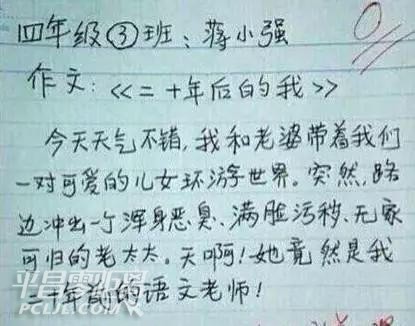 四年级③班:蒋小强
0
作文:<<二十年后的我>>
今天天气不错,我和老婆带着我们
一对可爱的儿女环游世界。突然,路
边冲出一个浑身恶臭、满脸污秽、无家
可归的老太太。天啊!她竟然是我
二十年前的语文老师!
PCLIFE.COM